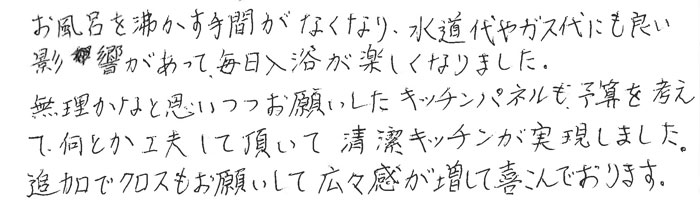 お風呂を沸かす手間がなくなり、水道代やガス代にも良い
影響があって、毎日入浴が楽しくなりました。
無理かなと思いつつお願いしたキッチンパネルも、予算を考え
て、何とか工夫して頂いて 清潔キッチンが実現しました。
追加でクロスもお願いして広々感が増して喜こんでおります。